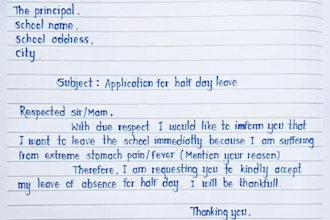 The principal,
School name,
School address,
City.
Subject: Application for half day leave
Respected sir/Mam,
With due respect I would like to imform you that
I want to leave the school immediatly because I am suffering
from extreme stomach pain/fever (Mention your reason)
Therefore, I am requesting you to kindly accept
my leave of absence for half day. I will be thankfull.
Thanking you.